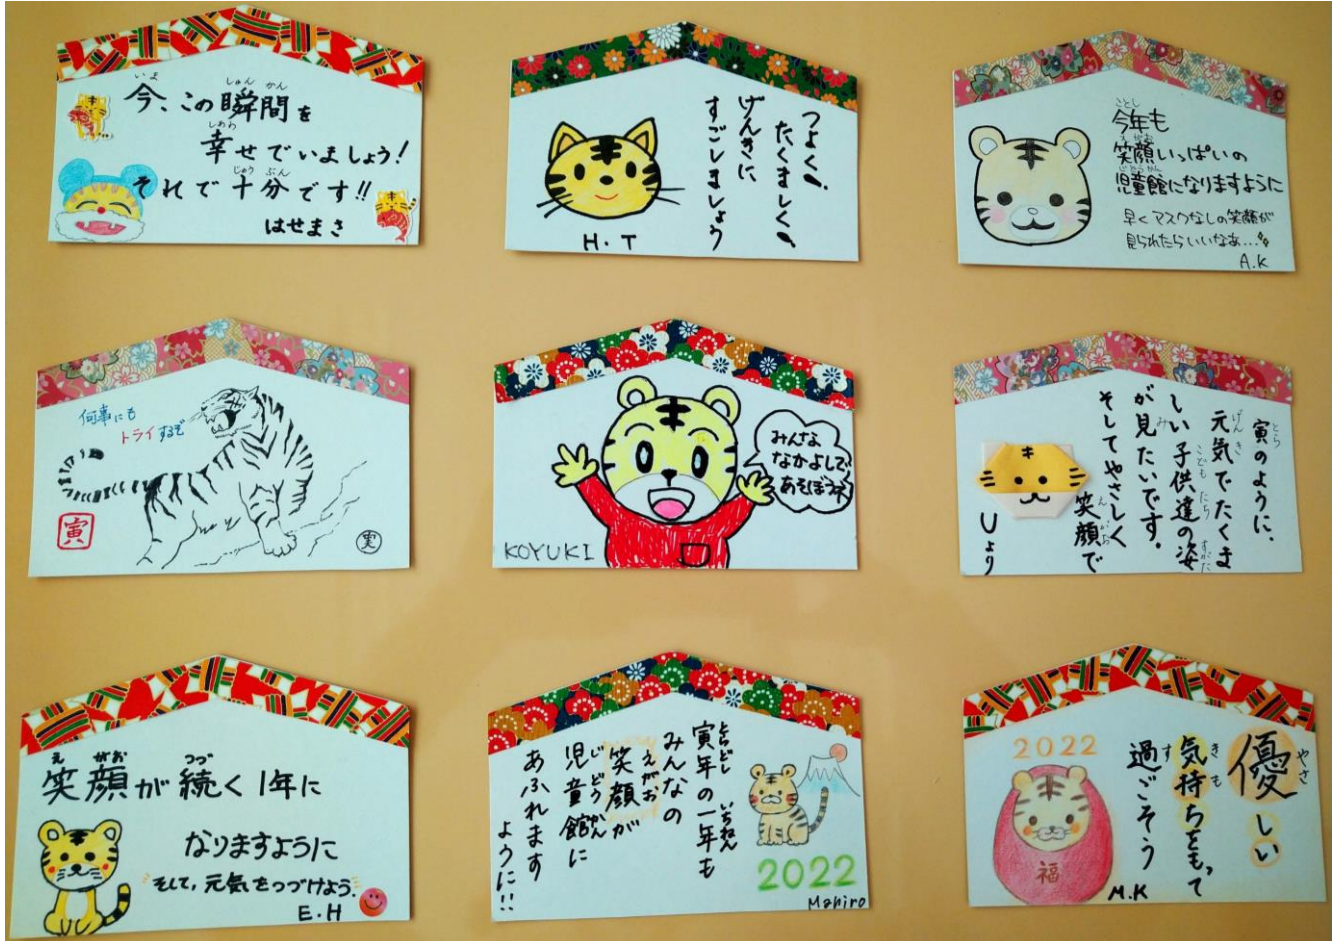 今、この瞬間を
幸せでいましょう！
それで十分です!!
はせまさ
つよく、
たくましく、
げんきに
すごしましょう
H.T
今年も
笑顔いっぱいの
児童館になりますように
早くマスクなしの笑顔が
見られたらいいなぁ...
A.K
何事にも
トライするぞ
寅
実
みんな
なかよしで
あそぼうネ
KOYUKI
寅のように、
元気でたくま
しい子供達の姿
が見たいです。
そしてやさしく
笑顔で
Uより
笑顔が続く1年に
なりますように
そして、元気をつづけよう。
E.H
寅年の一年も
みんなの
笑顔が
児童館に
あふれます
ように!!
2022
Mahiro
2022
優しい
気持ちをもって
過ごそう
福
M.K